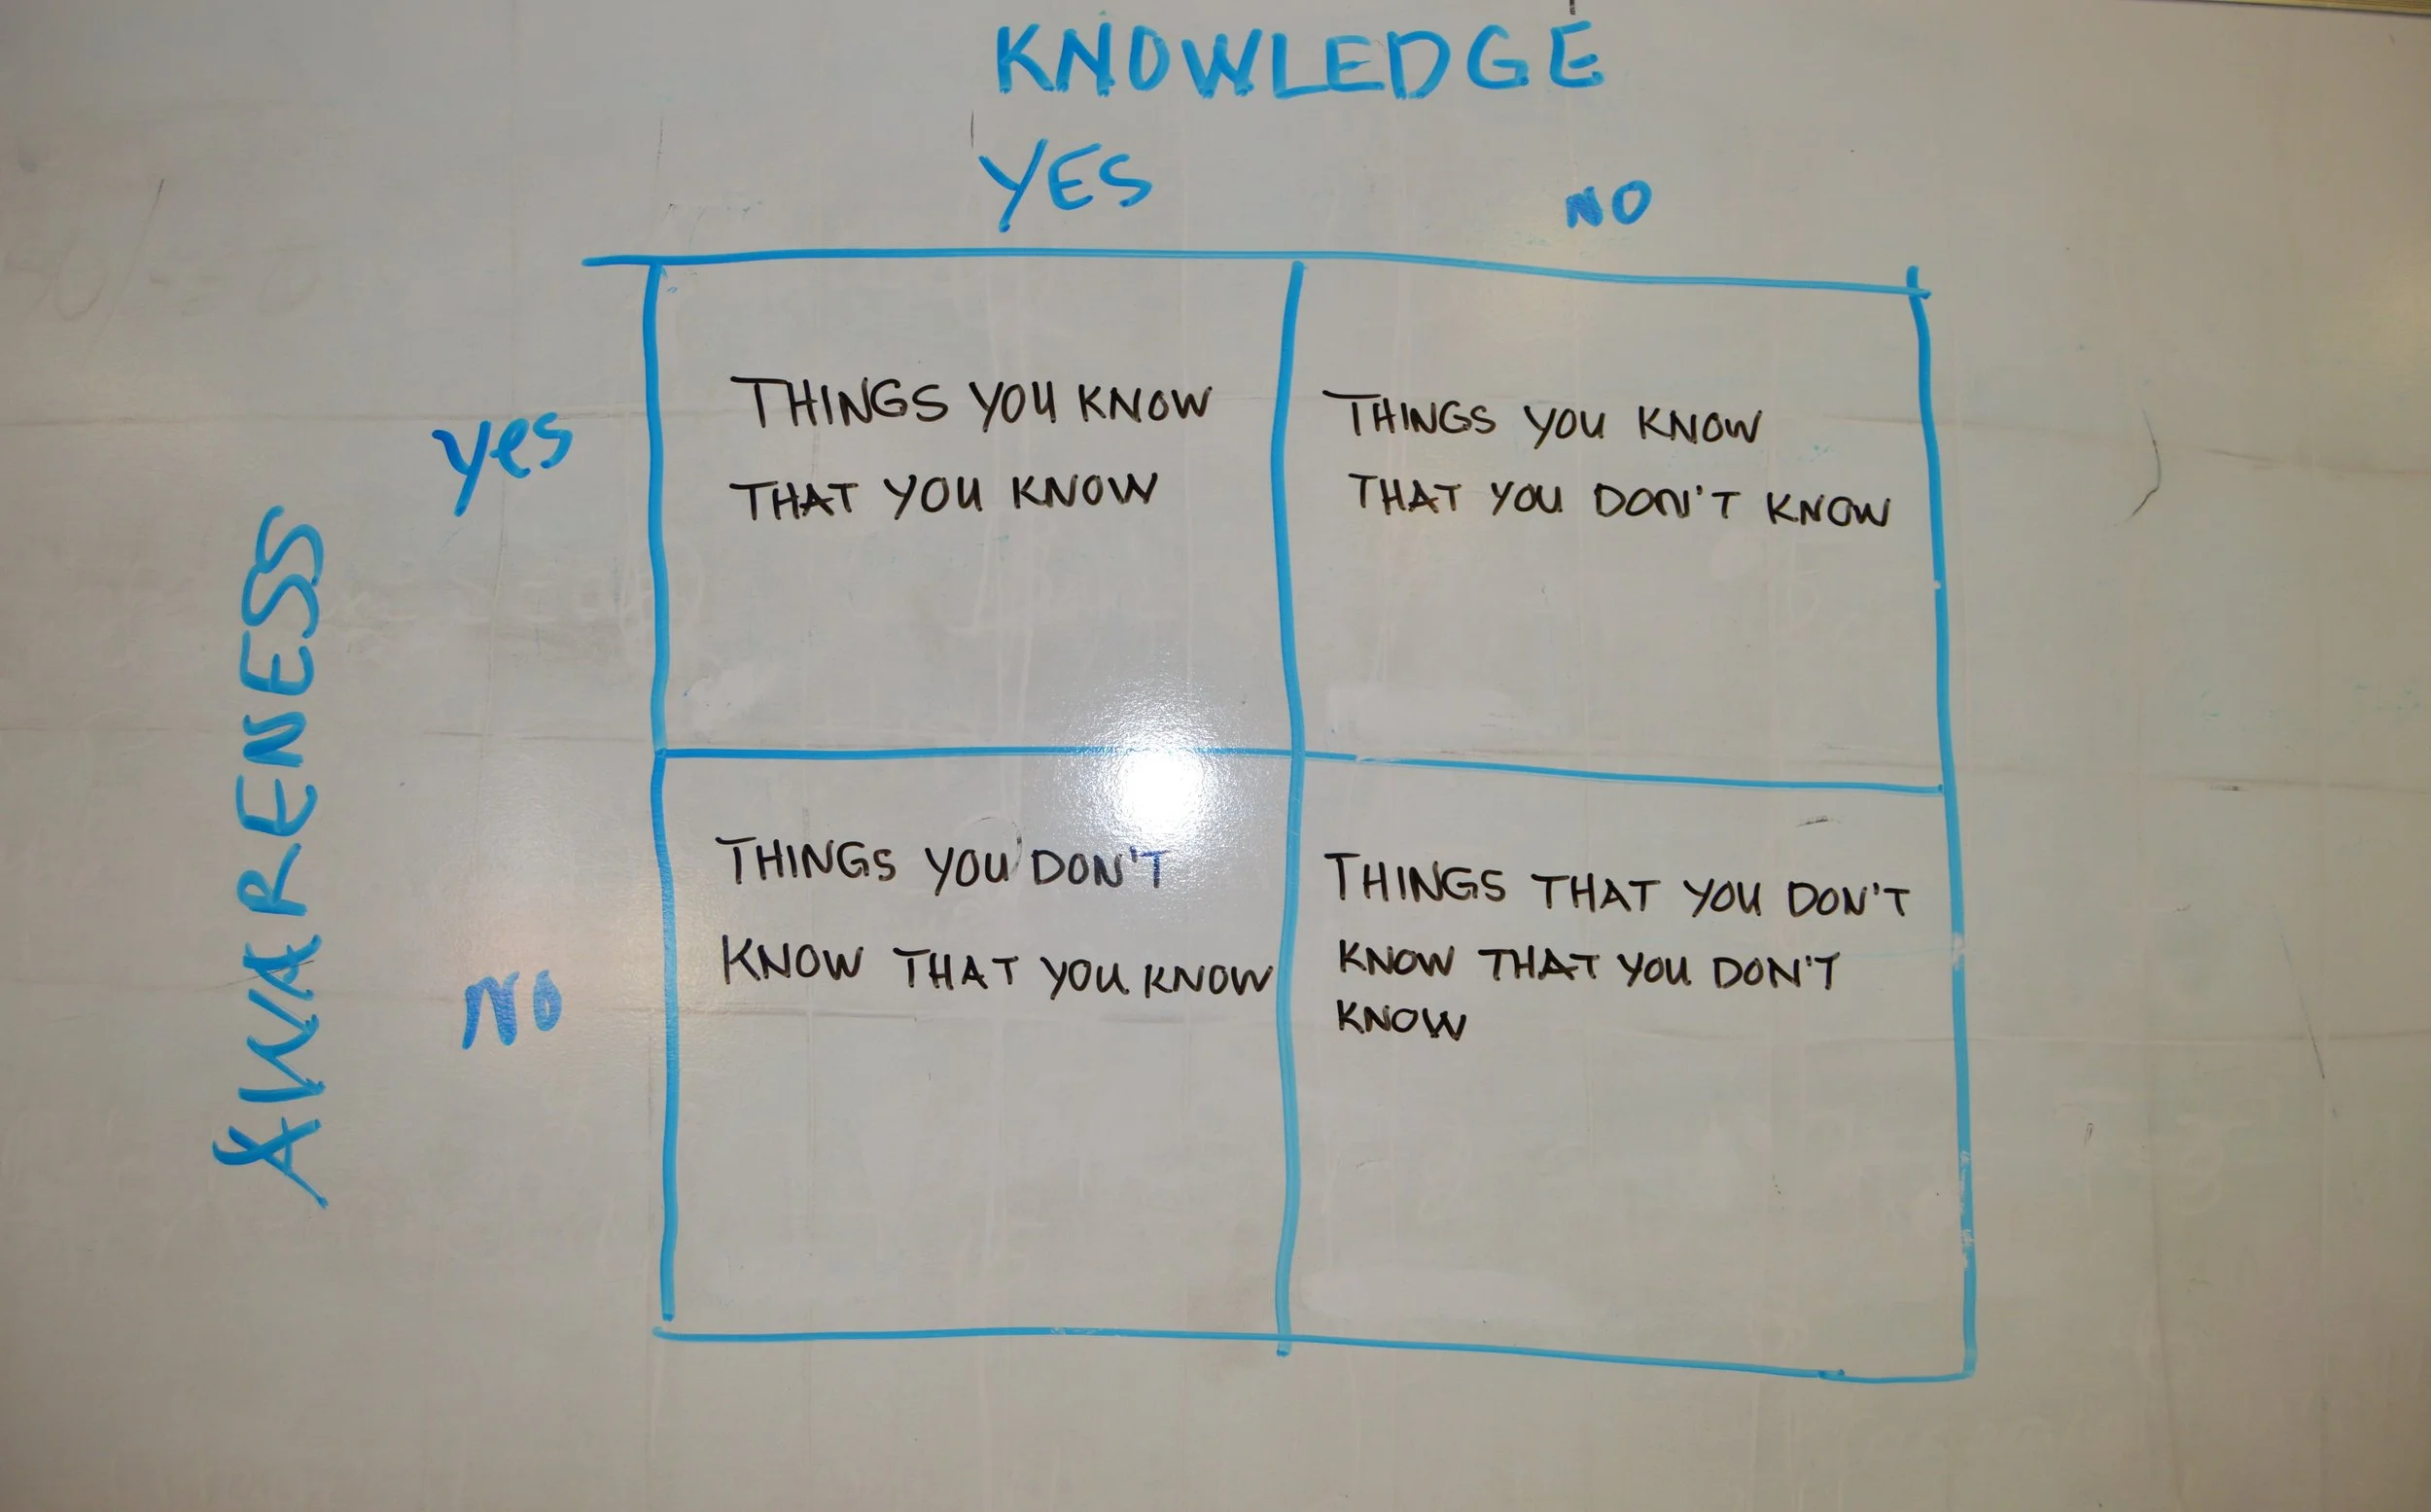 KNOWLEDGE
YES NO
AWARENESS
yes
THINGS YOU KNOW
THAT YOU KNOW
THINGS YOU KNOW
THAT YOU DON'T KNOW
NO
THINGS YOU DON'T
KNOW THAT YOU KNOW
THINGS THAT YOU DON'T
KNOW THAT YOU DON'T
KNOW